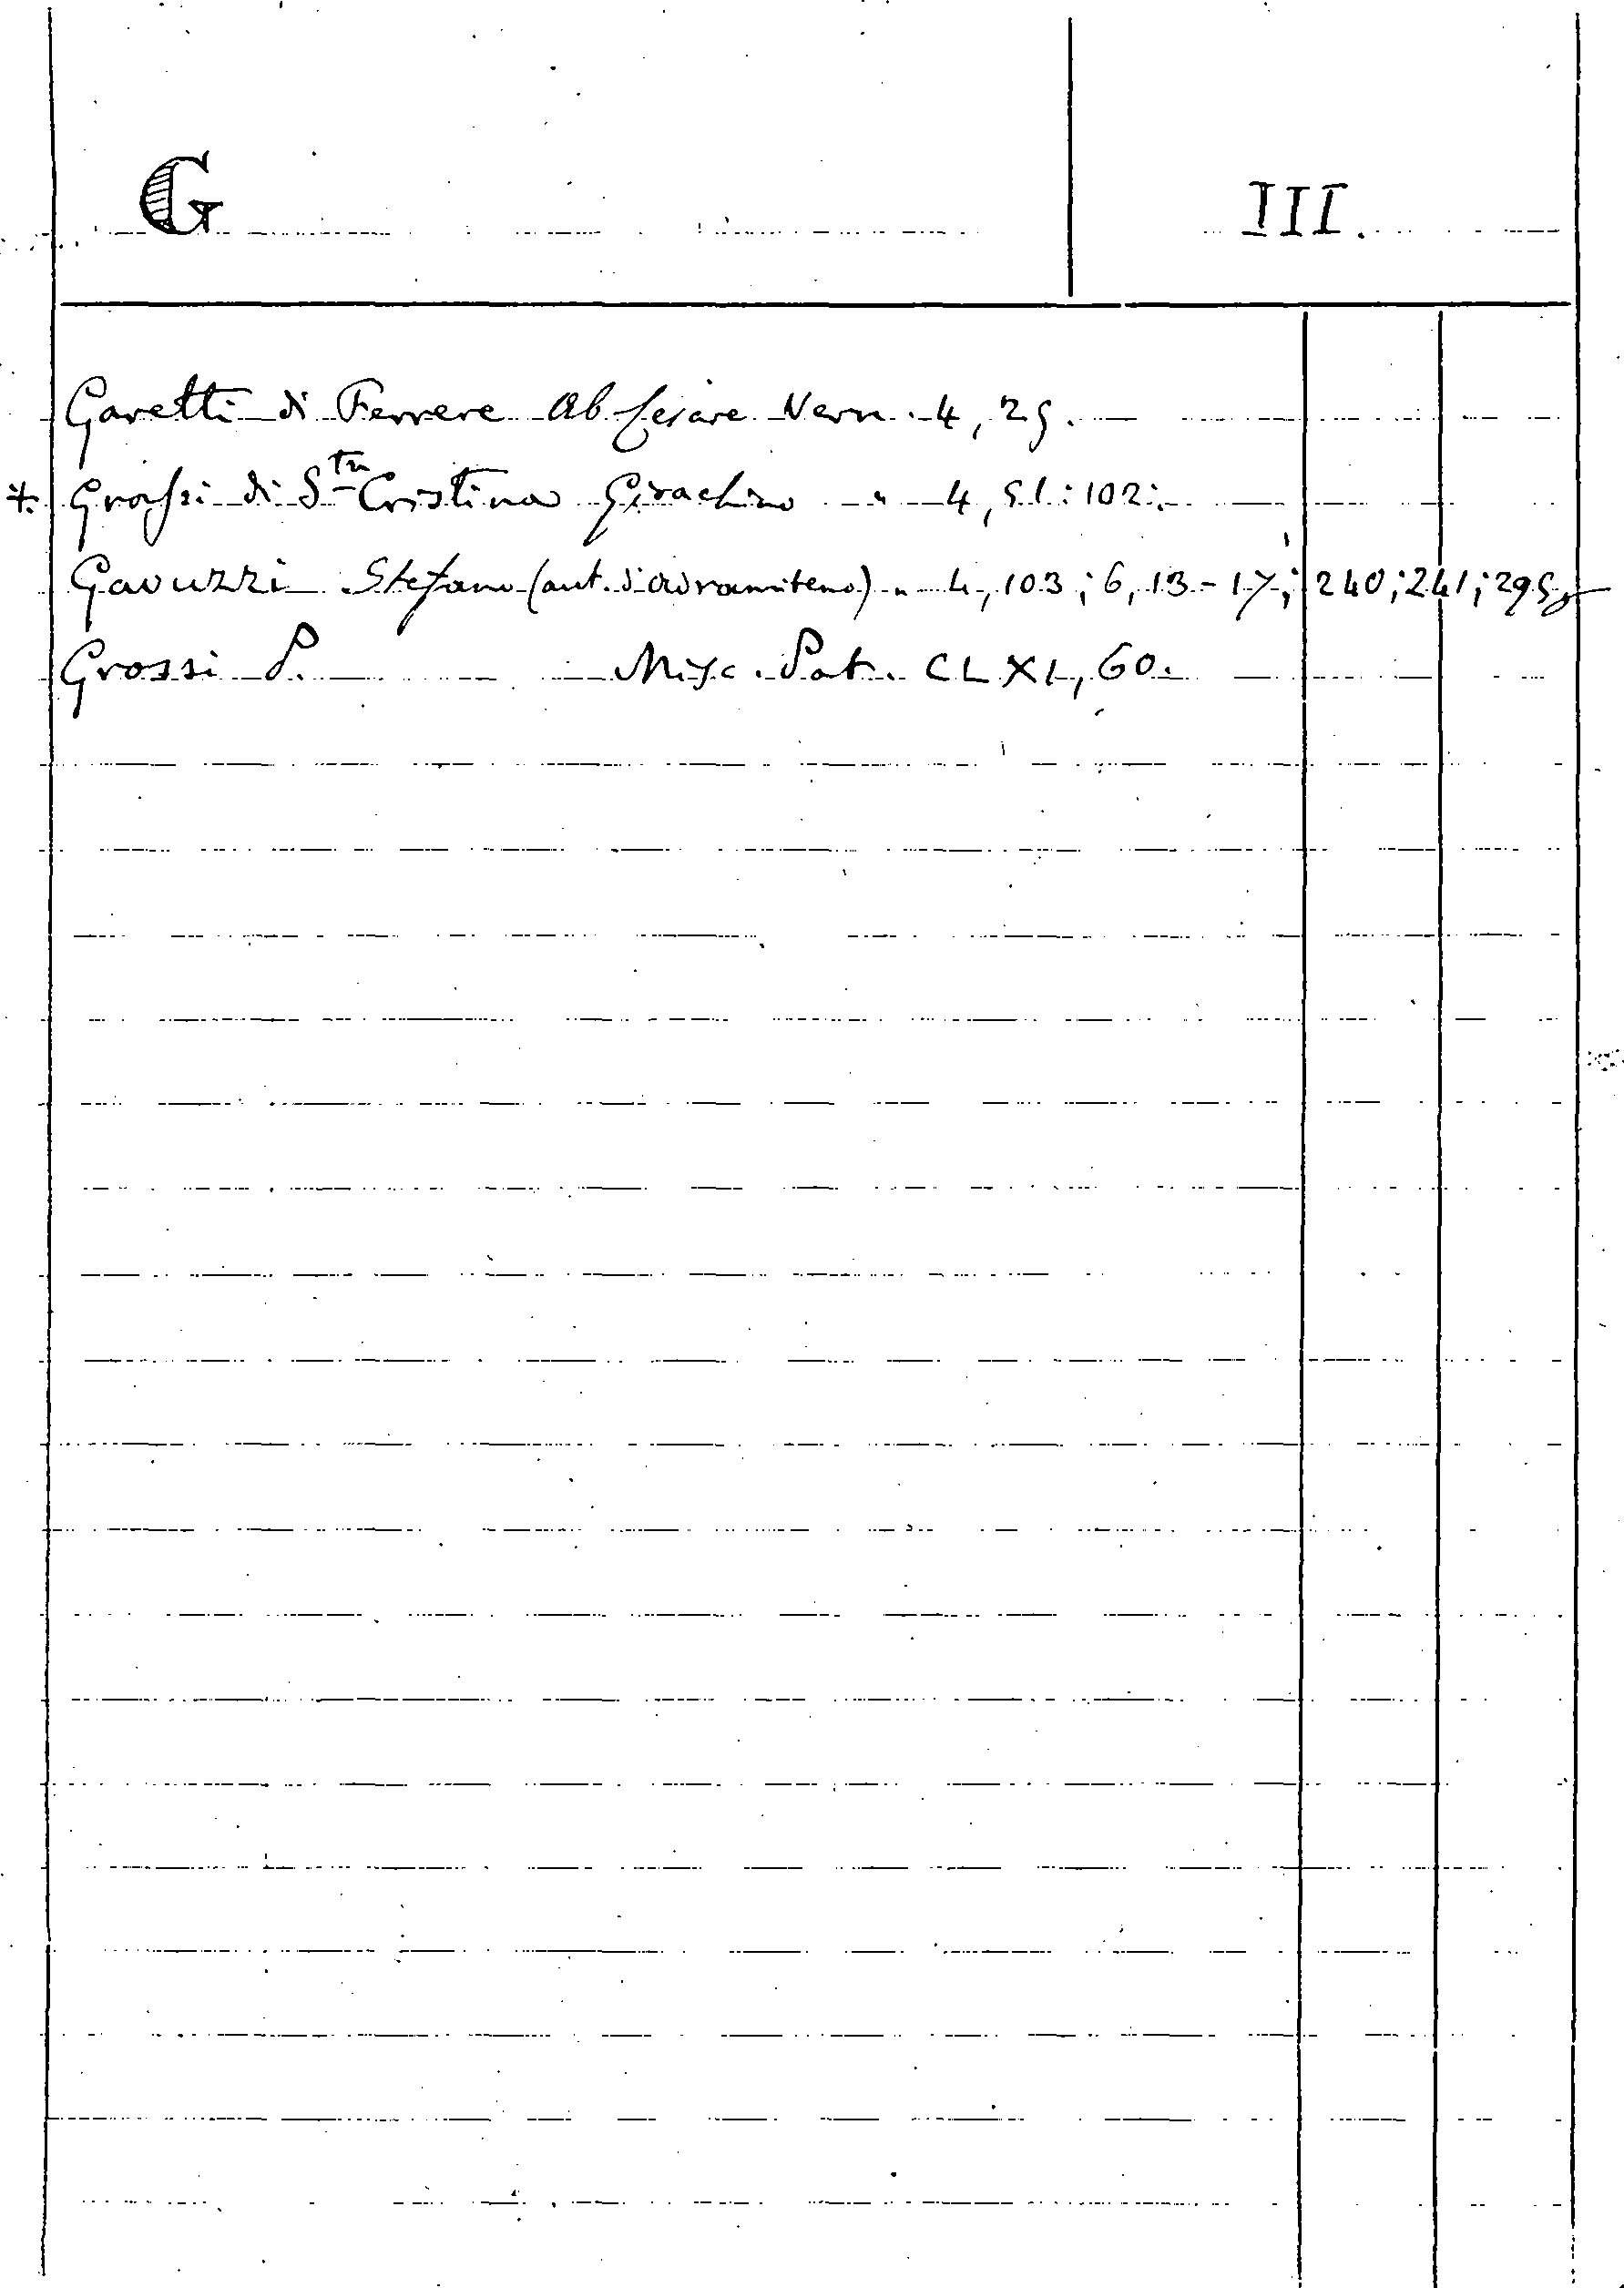 G III.
Garetti di Ferrere Ab Cesare Vern. 4, 25.
*. Grossi di Sta Cristina Gioachino " 4, 51: 102:
Gavuzzi Stefano (aut. di Adramiteno) " 4, 103; 6, 13-17; 240; 241; 295,
Grossi P. Misc. Pat. CLXI, 60.